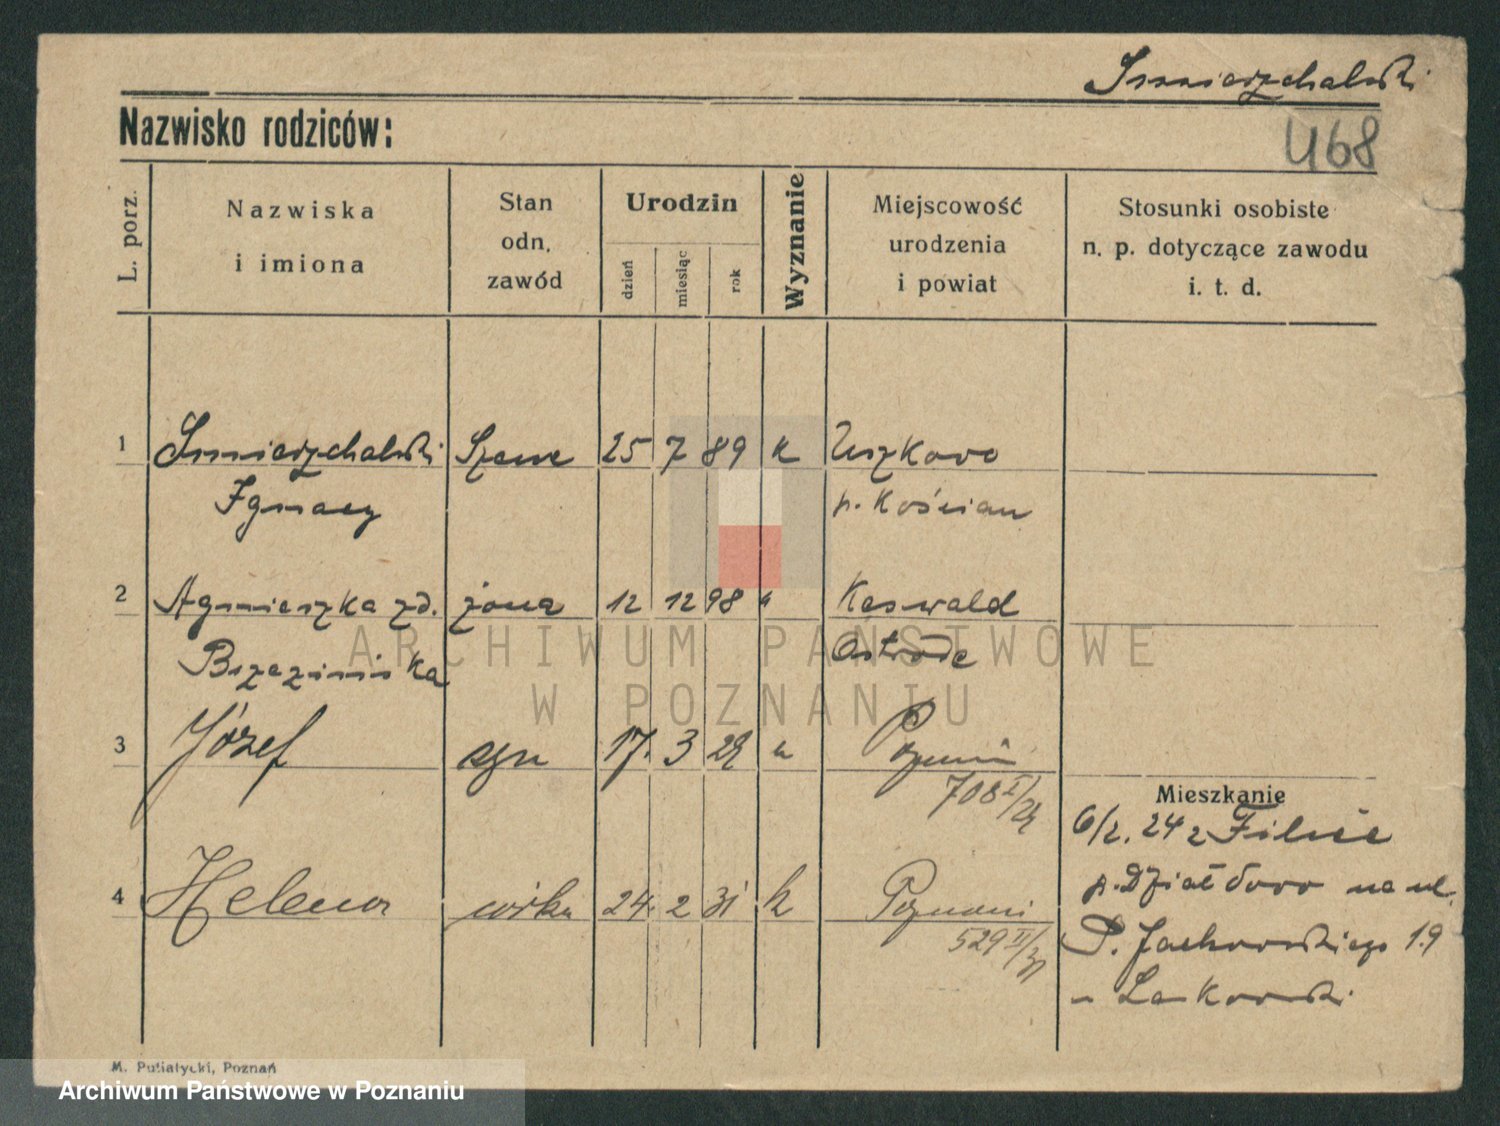 Smierzchalski
468
Nazwisko rodziców:
L. porz.
Nazwiska
i imiona
Stan
odn.
zawód
Urodzin
dzień
miesiąc
rok
Wyznanie
Miejscowość
urodzenia
i powiat
Stosunki osobiste
n. p. dotyczące zawodu
i. t. d.
1 Smierzchalski Szewc 25 7 89 k
Ignacy p. Kościan
2 Agnieszka zd. żona 12 12 98 "
Brzezinska Ostróde
3 Józef syn 17. 3 24 " Poznań
708 I/24
Mieszkanie
6/2. 24 z
4 Helena córka 24. 2 31 k Poznań
529 II/31
p. Działdowo na ul.
P. Jackowskiego 19
u Laskowski
M. Putiatycki, Poznań
ARCHIWUM PAŃSTWOWE
W POZNANIU
Archiwum Państwowe w Poznaniu